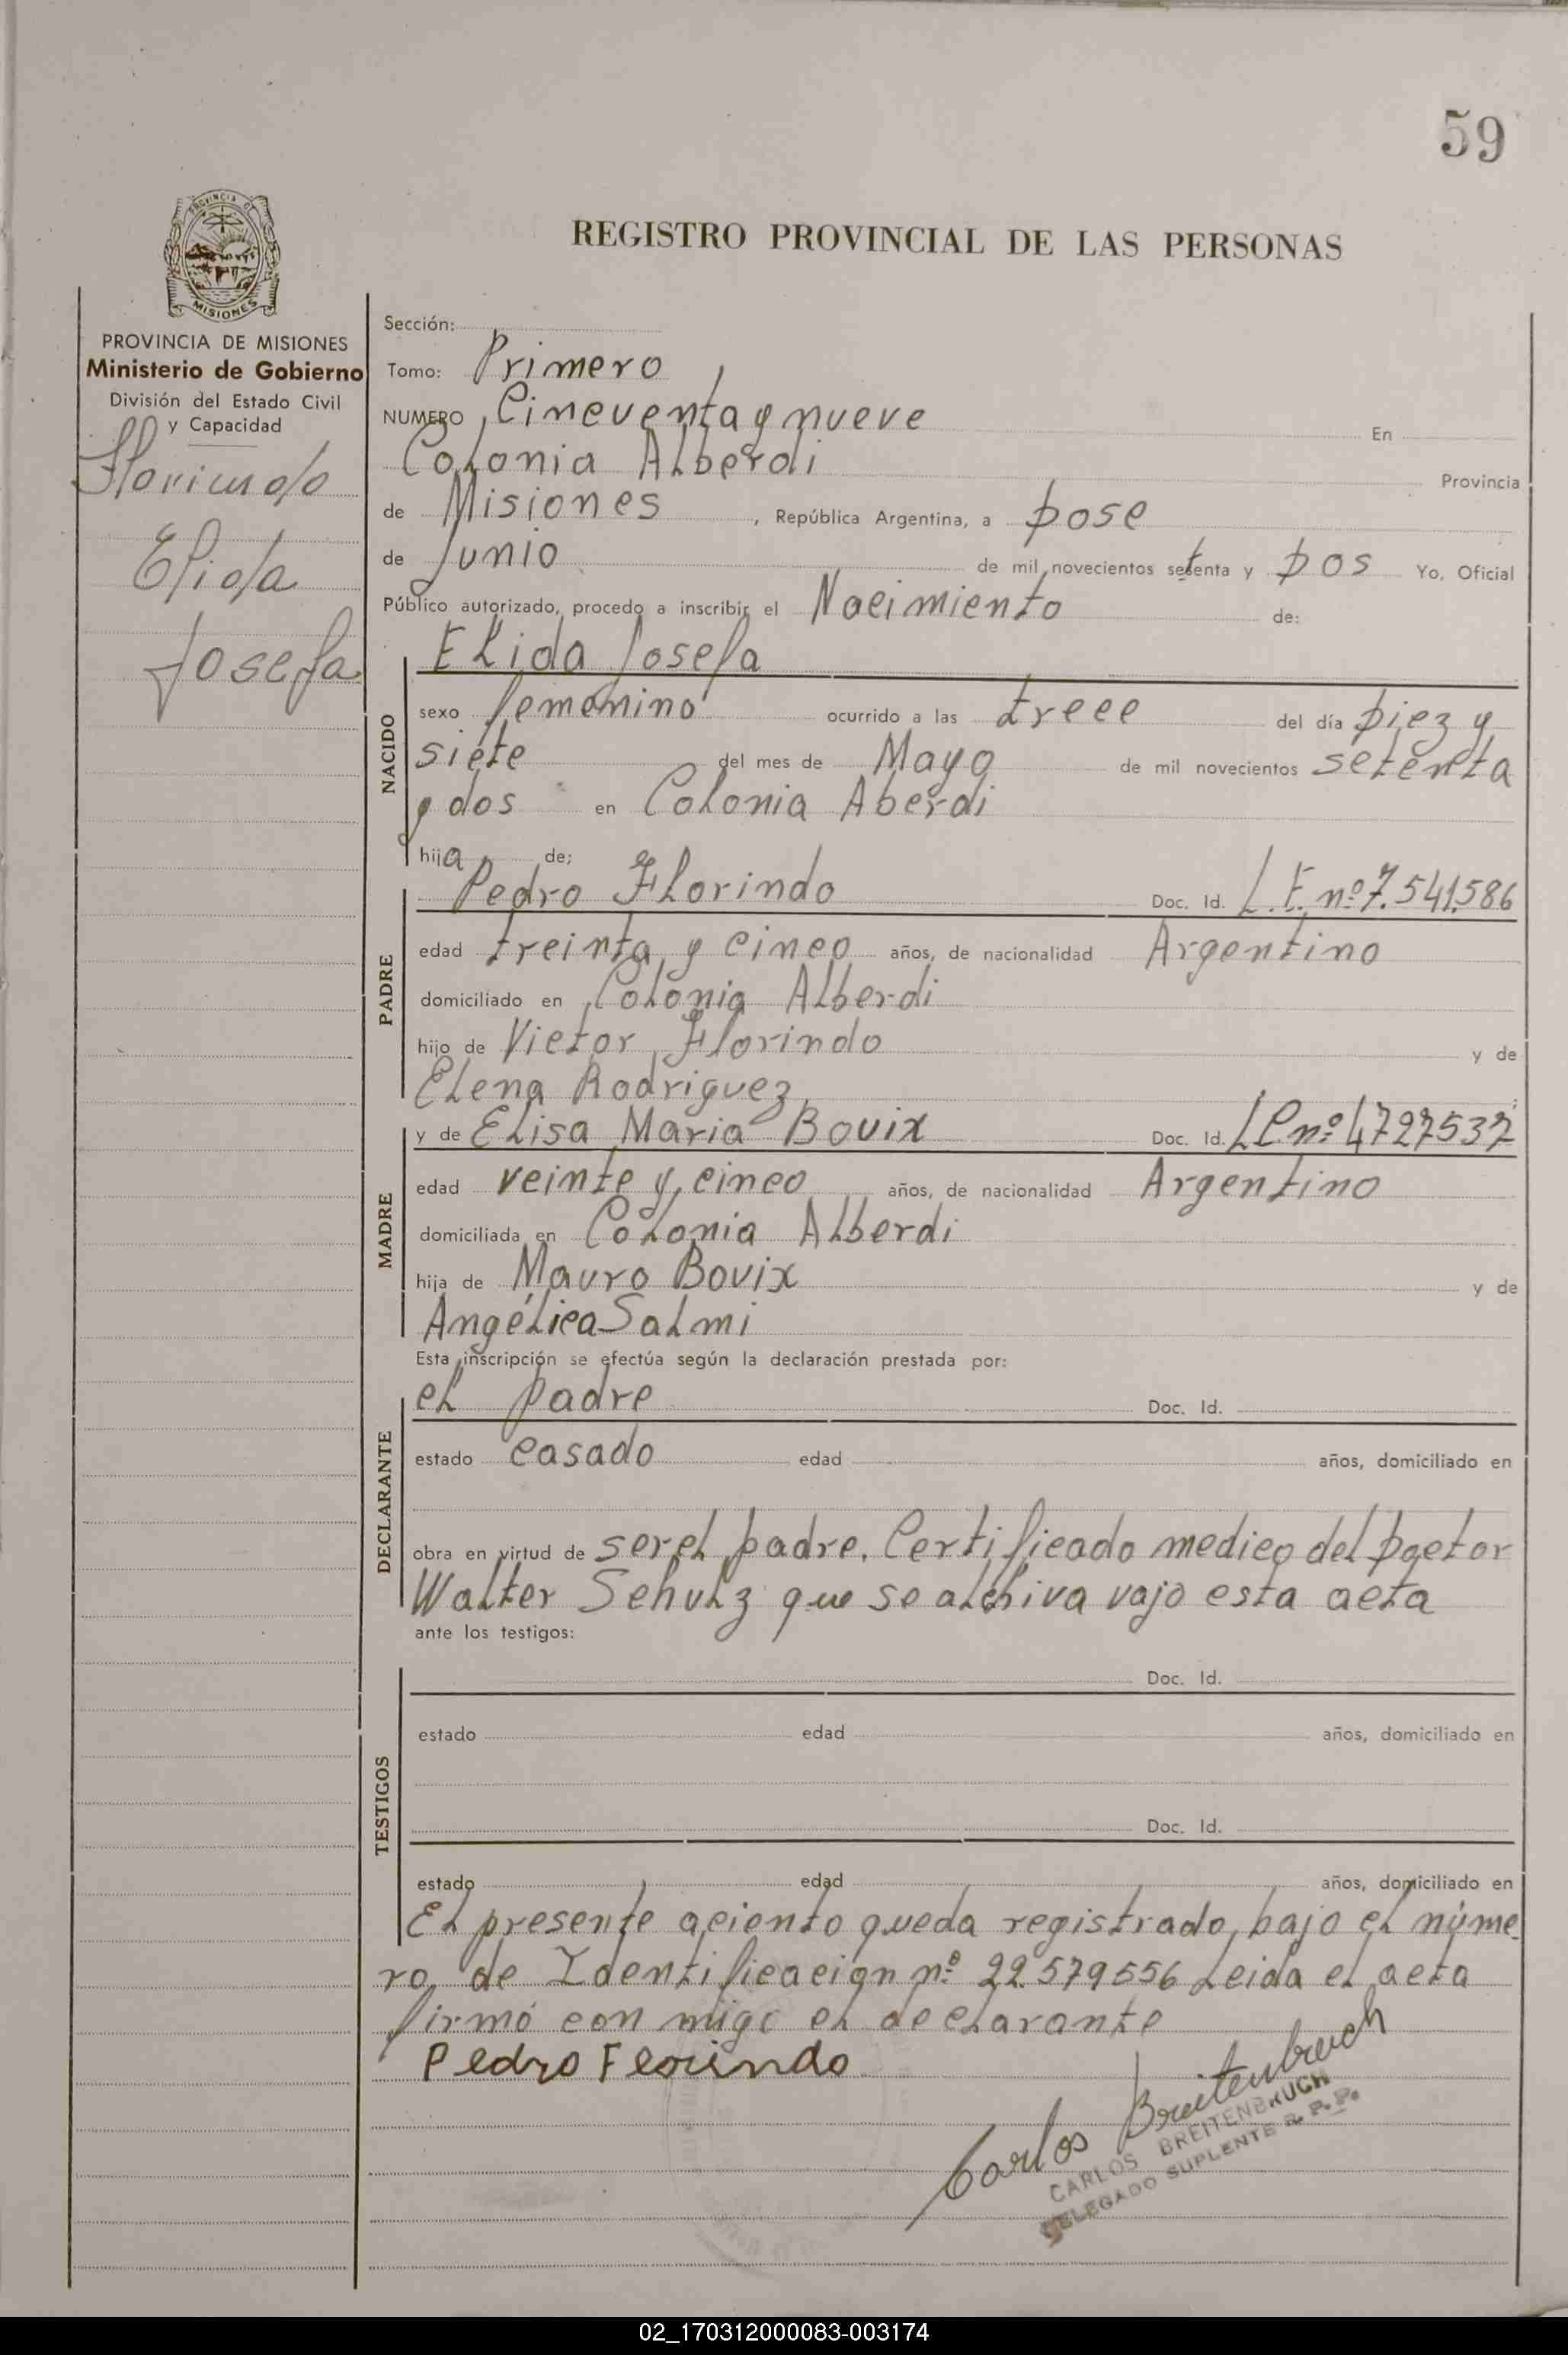 59
PROVINCIA DE MISIONES
REGISTRO PROVINCIAL DE LAS PERSONAS
PROVINCIA DE MISIONES
Ministerio de Gobierno
División del Estado Civil
y Capacidad
Florindo
Elida
Josefa
Sección:
Tomo: Primero
NUMERO Cincuenta y nueve En
Colonia Alberdi Provincia
de Misiones, República Argentina, a Dose
de Junio de mil novecientos setenta y Dos Yo, Oficial
Público autorizado, procedo a inscribir el Nacimiento de:
NACIDO
Elida Josefa
sexo femenino ocurrido a las trece del día Diez y
siete del mes de Mayo de mil novecientos setenta
y dos en Colonia Aberdi
hija de;
PADRE
Pedro Florindo Doc. Id. L.E. nº 7.541.586
edad treinta y cinco años, de nacionalidad Argentino
domiciliado en Colonia Alberdi
hijo de Victor Florindo y de
Elena Rodriguez
MADRE
y de Elisa Maria Bouix Doc. Id. LC nº 4727537
edad veinte y cinco años, de nacionalidad Argentino
domiciliada en Colonia Alberdi
hija de Mauro Bovix y de
Angélica Salmi
Esta inscripción se efectúa según la declaración prestada por:
DECLARANTE
el padre Doc. Id.
estado casado edad años, domiciliado en
obra en virtud de ser el padre. Certificado medico del Doctor
Walter Schulz que se archiva vajo esta acta
ante los testigos:
TESTIGOS
Doc. Id.
estado edad años, domiciliado en
Doc. Id.
estado edad años, domiciliado en
El presente aciento queda registrado, bajo el núme
ro, de Identificacion nº 22.579556 Leida el acta
firmó con migo el declarante
Pedro Florindo
Carlos Breitenbruch
CARLOS BREITENBRUCH
DELEGADO SUPLENTE R. P. P.
02_170312000083-003174